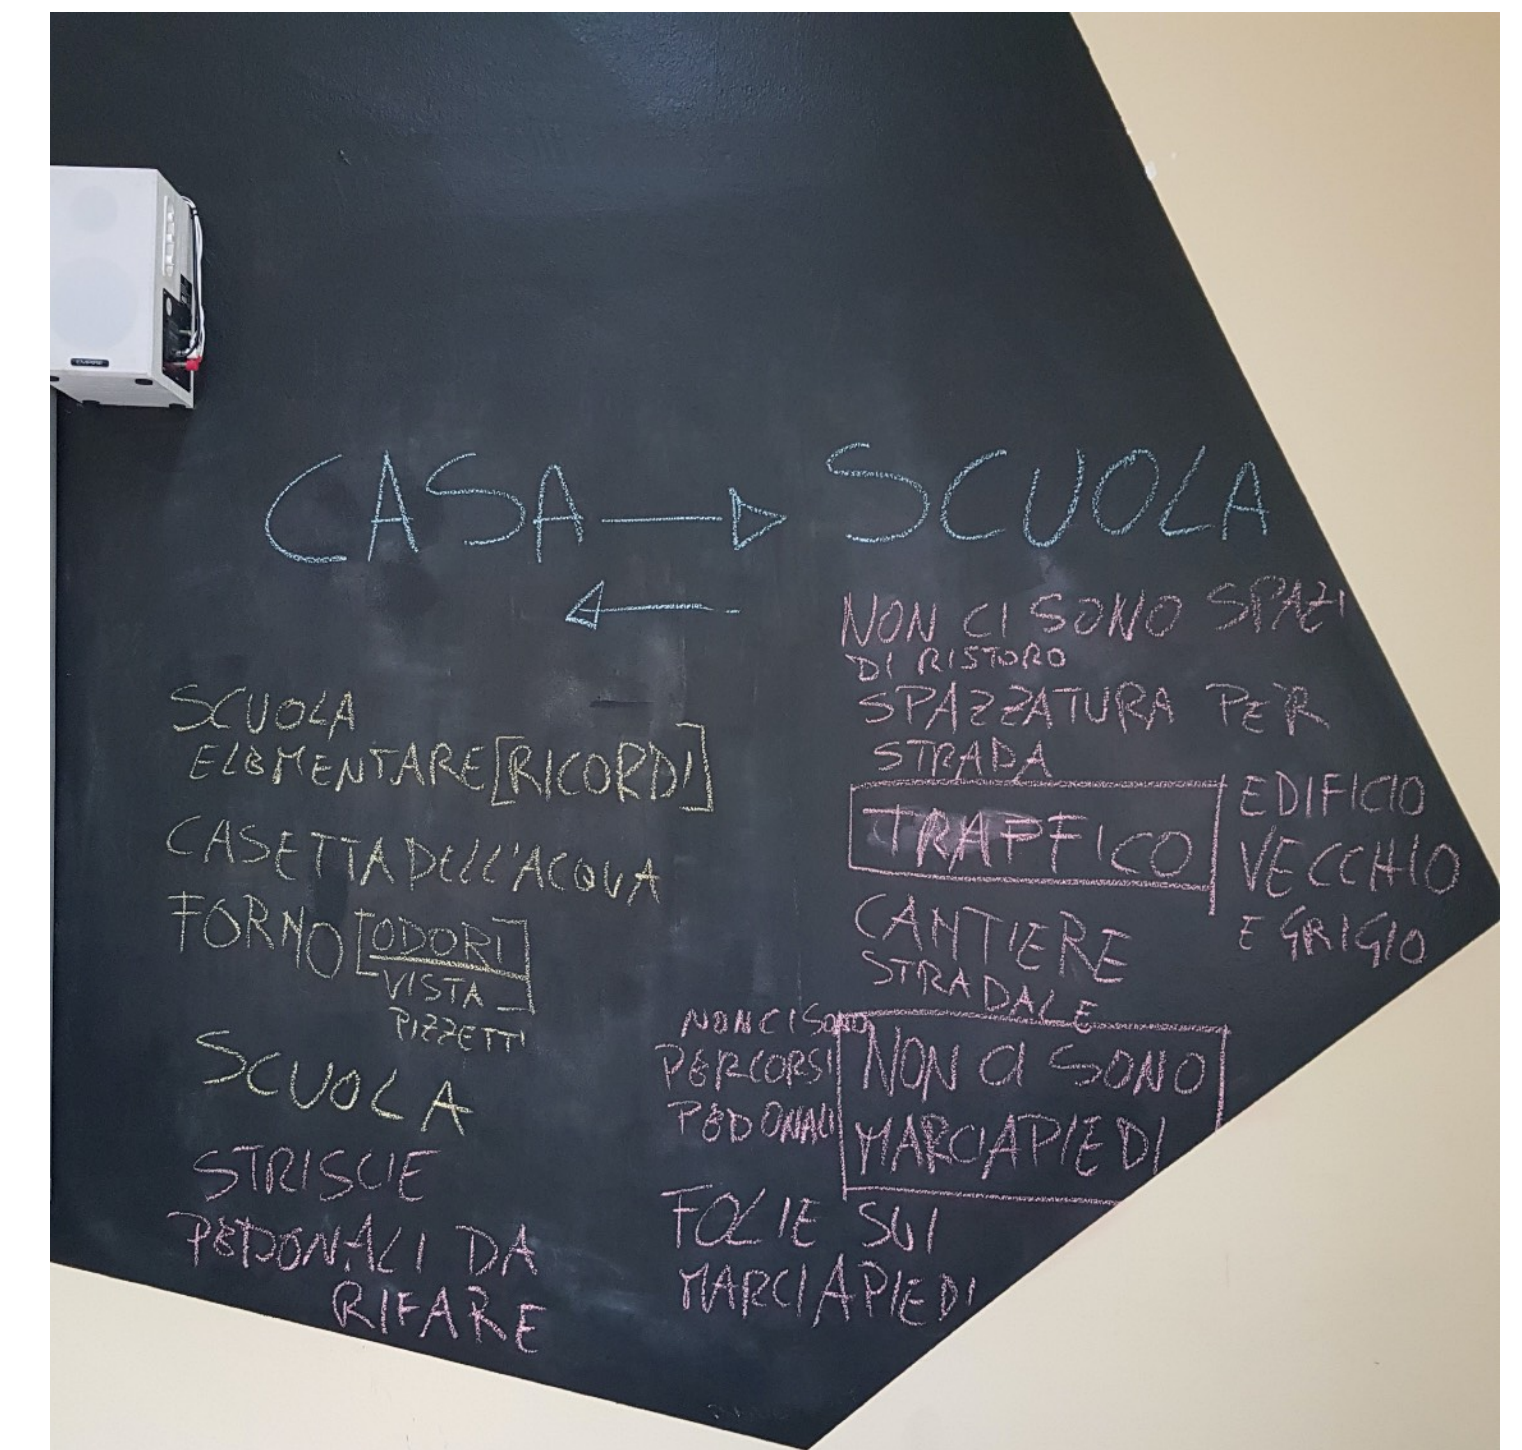 CASA SCUOLA
SCUOLA
ELEMENTARE [RICORDI]
CASETTA DELL'ACQUA
FORNO [ODORI]
VISTA
PIZZETTI
SCUOLA
STRISCIE
PEDONALI DA
RIFARE
NON CI SONO SPAZI
DI RISTORO
SPAZZATURA PER
STRADA
TRAFFICO
EDIFICIO
VECCHIO
E GRIGIO
CANTIERE
STRADALE
NON CI SONO
PERCORSI
PEDONALI
NON CI SONO
MARCIAPIEDI
FOLIE SUI
MARCIAPIEDI